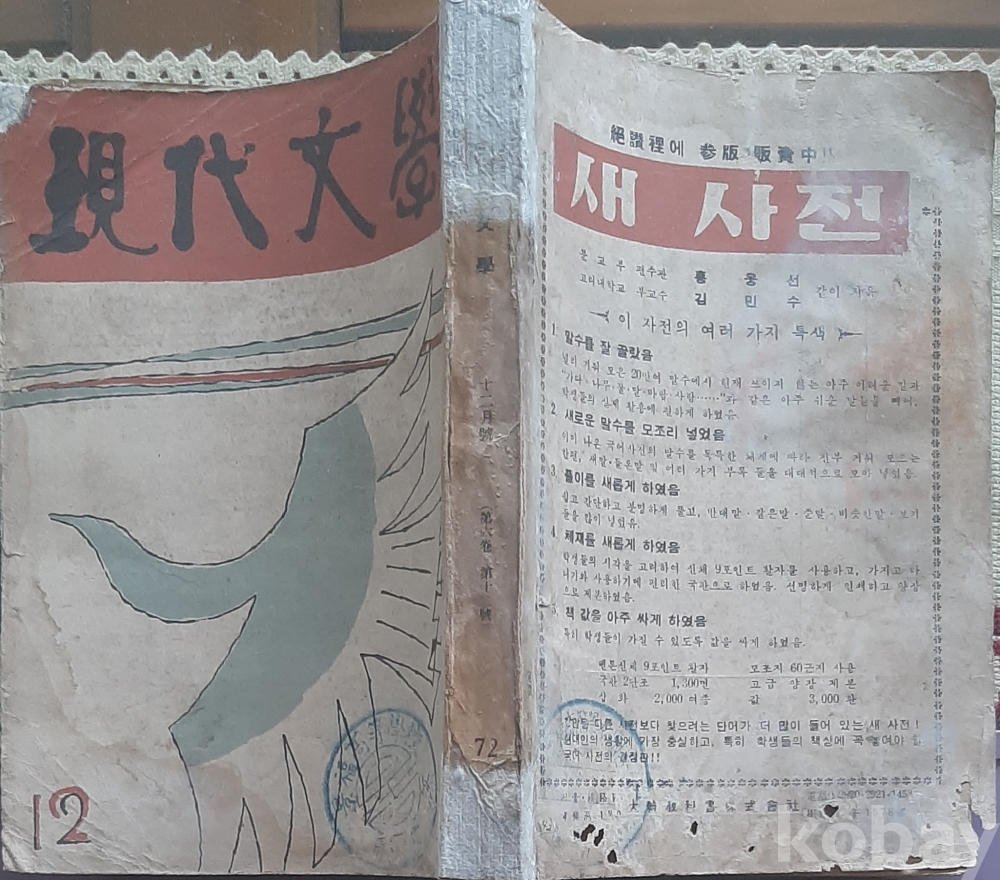 現代文學
12
文學
十二月號
(第六卷 第十 號)
72
絕讚裡에 參版 販賣中!!
새 사전
문교부 편수관 홍웅선
고려대학교 부교수 김민수 같이 지음
이 사전의 여러 가지 특색
1. 말수를 잘 골랐음
널리 가려 모은 20만여 말수에서 현재 쓰이지 않는 아주 어려운 말과
"가다·나무·물·말·바람·사람……"과 같은 아주 쉬운 말들을 빼니,
학생들의 실제 활용에 편하게 하였음.
2. 새로운 말수를 모조리 넣었음
이미 나온 국어사전의 말수를 독특한 체계에 따라 전부 저희 모으는
한편, 새말·들온말 및 여러 가지 부록 들을 대대적으로 모아 넣었음.
3. 풀이를 새롭게 하였음
쉽고 간단하고 분명하게 풀고, 반대말·같은말·준말·비슷한말·보기
들을 많이 넣었음.
4. 체재를 새롭게 하였음
학생들의 시각을 고려하여 신체 9포인트 활자를 사용하고, 가지고 다
니기와 사용하기에 편리한 국판으로 하였음. 선명하게 인쇄하고 양장
으로 제본하였음.
5. 책 값을 아주 싸게 하였음
특히 학생들이 가질 수 있도록 값을 싸게 하였음.
벤톤신체 9포인트 활자 모조지 60근지 사용
국판 2단조 1,300면 고급 양장 제본
삽화 2,000여종 값 3,000환
다른 사전보다 찾으려는 단어가 더 많이 들어 있는 새 사전!
현대인의 생활에 가장 충실하고, 특히 학생들의 책상에 꼭 놓여야 할
국어 사전의 결정판!!
大韓敎科書株式會社
kobay